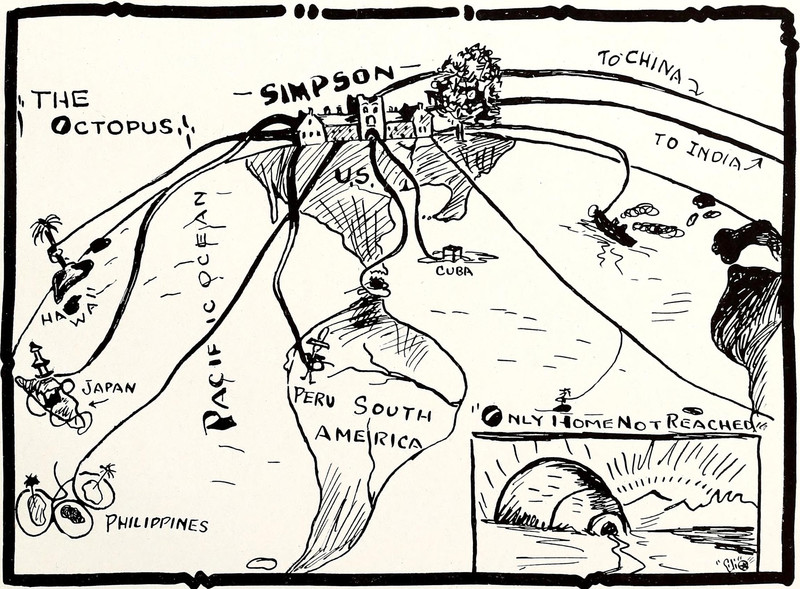 "THE
OCTOPUS"
- SIMPSON -
TO CHINA
TO INDIA
U.S.
CUBA
HAWAII
PACIFIC OCEAN
JAPAN
PERU
SOUTH
AMERICA
PHILIPPINES
"ONLY HOME NOT REACHED"